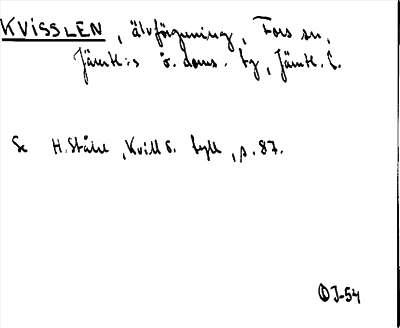 KVISSLEN, älvförgrening, Fors sn,
Jämtl:s ö. doms. tg, Jämtl. l.
Se H. Ståhl, Kvill o. byll, s. 87.
OJ-54